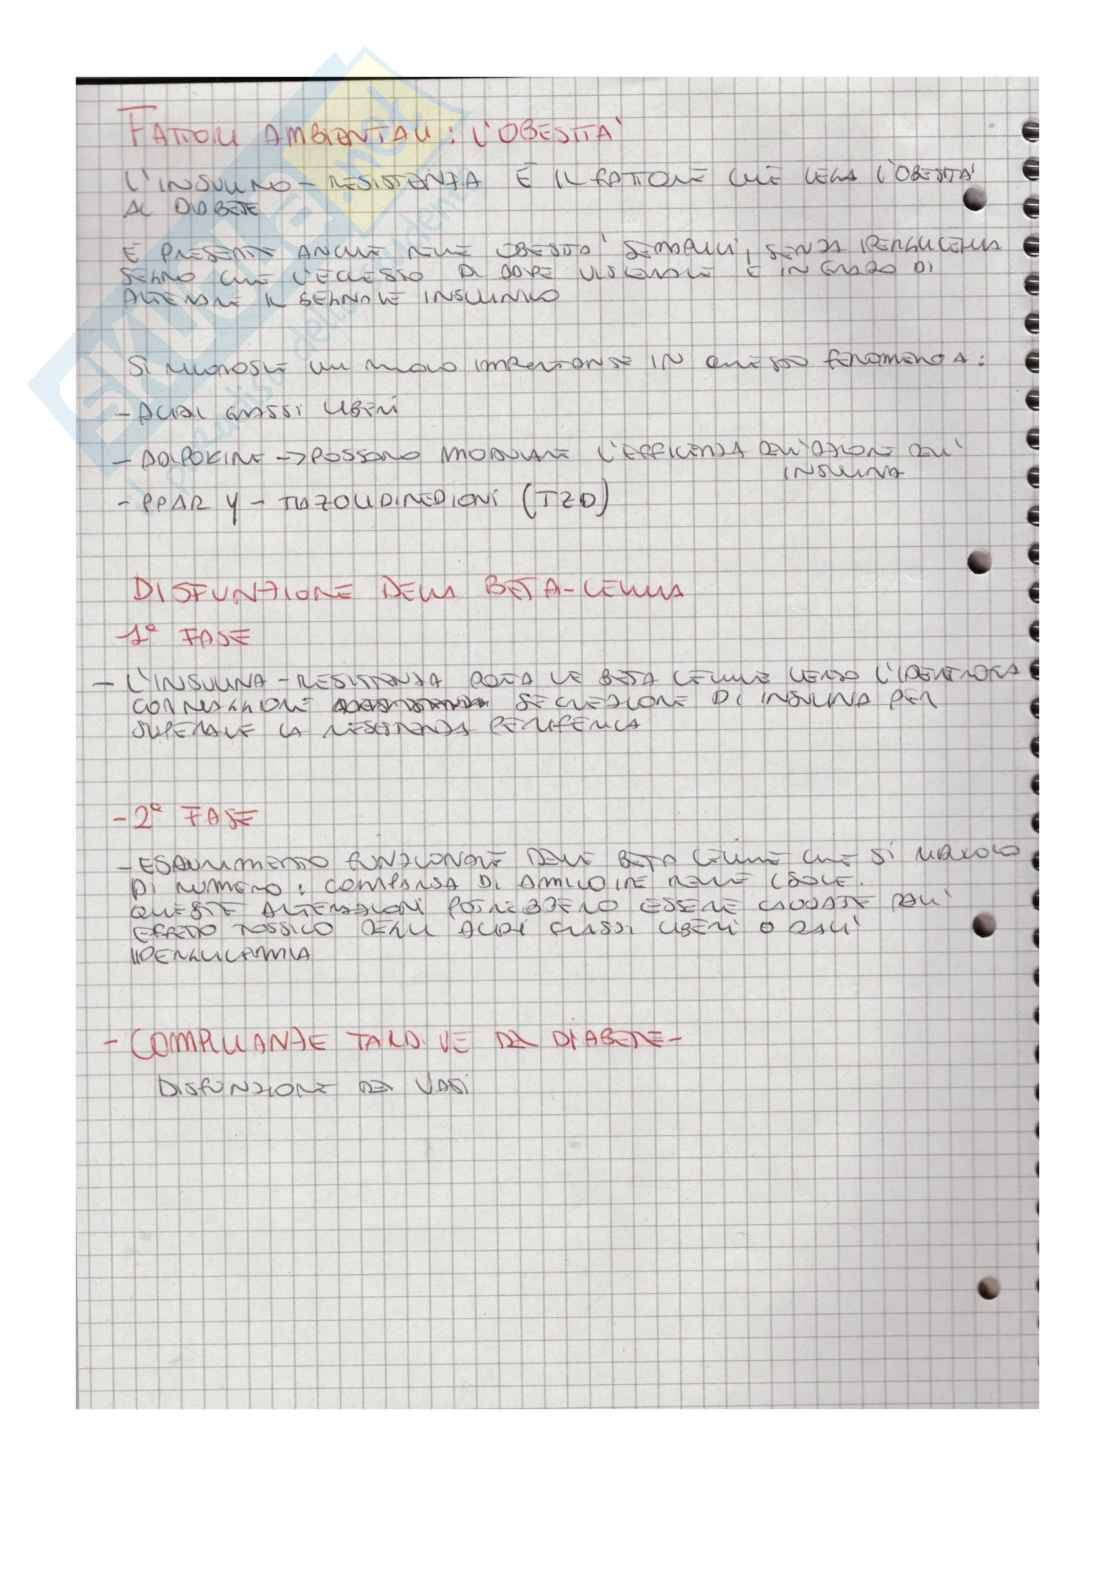 FATTORI AMBIENTALI: L'OBESITA'
L'INSULINO-RESISTENZA È IL FATTORE CHE LEGA L'OBESITA'
AL DIABETE
È PRESENTE ANCHE NELLE OBESITA' SEMPLICI, SENZA IPERGLICEMIA
SEGNO CHE L'ECCESSO DI ADIPE VISCERALE È IN GRADO DI
ALTERARE IL SEGNALE INSULINICO
SI RICONOSCE UN RUOLO IMPORTANTE IN QUESTO FENOMENO A:
- ACIDI GRASSI LIBERI
- ADIPOKINE -> POSSONO MODULARE L'EFFICIENZA DELL'AZIONE DELL'
INSULINA
- PPAR γ - TIAZOLIDINEDIONI (TZD)
DISFUNZIONE DELLA BETA-CELLULA
1ª FASE
- L'INSULINA-RESISTENZA LE BETA CELLULE VERSO L'
SECREZIONE DI INSULINA PER
SUPERARE LA RESISTENZA PERIFERICA
- 2ª FASE
- ESAURIMENTO FUNZIONALE DELLE BETA CELLULE CHE SI RIDUCONO
DI NUMERO: COMPARSA DI AMILOIDE NELLE ISOLE.
QUESTE ALTERAZIONI POTREBBERO ESSERE CAUSATE DALL'
EFFETTO TOSSICO DEGLI ACIDI GRASSI LIBERI O DALL'
IPERGLICEMIA
- COMPLICANZE TARDIVE DEL DIABETE -
DISFUNZIONE DEI VASI